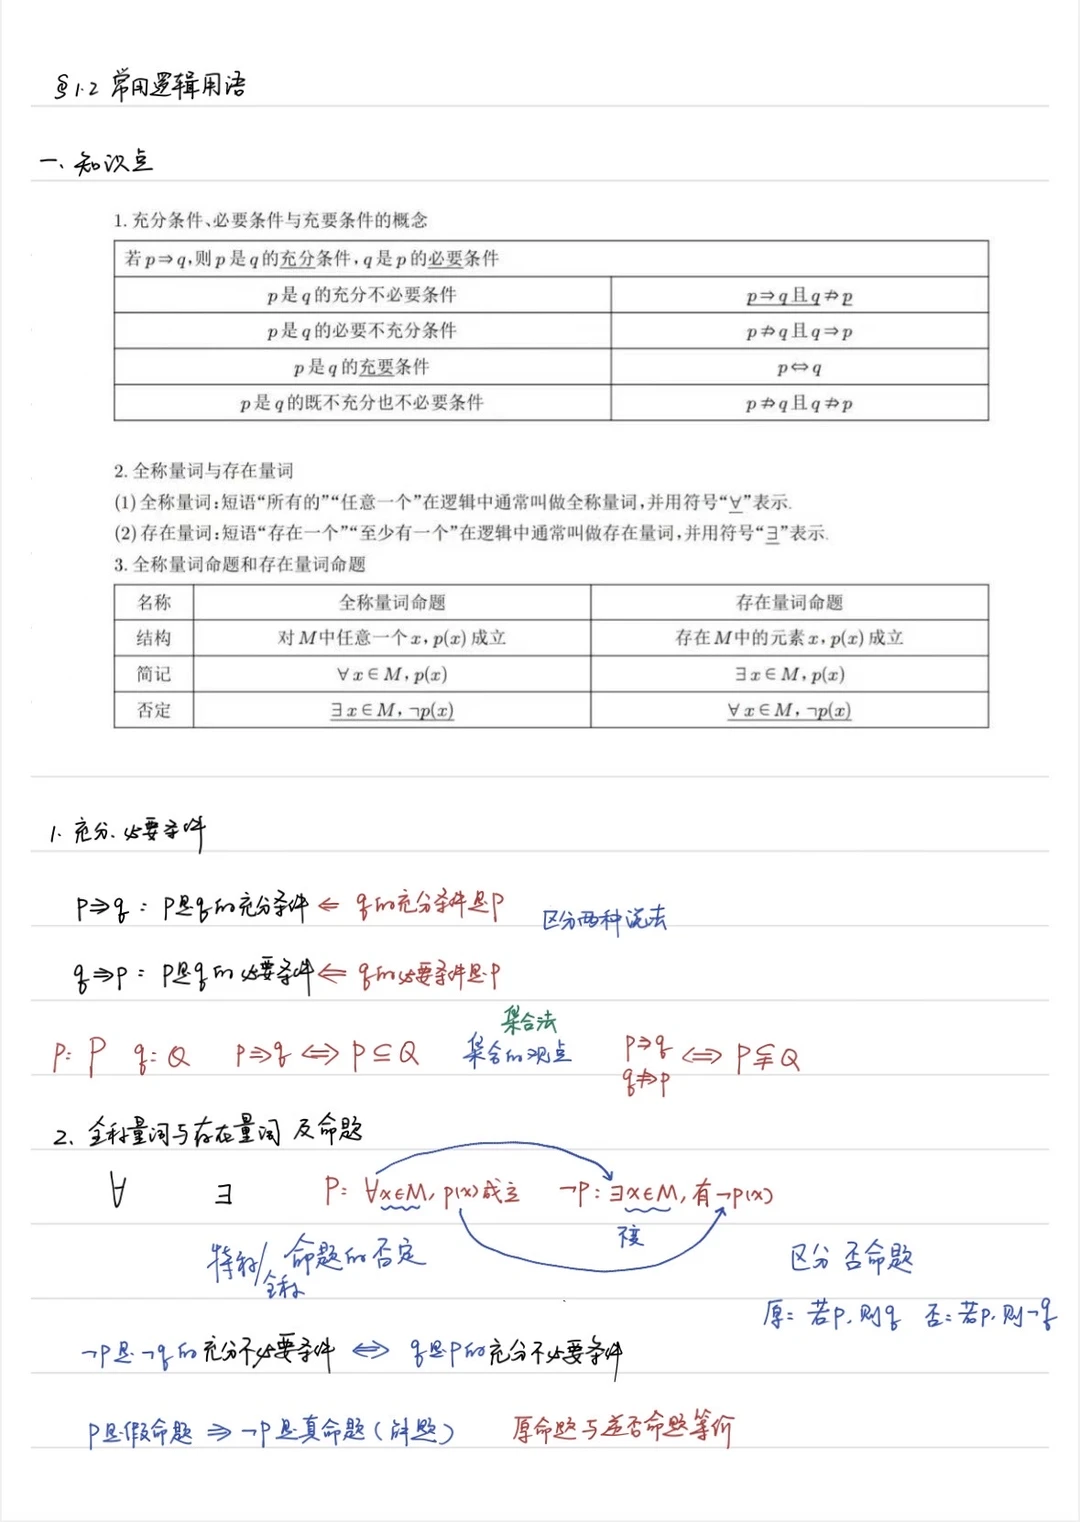 §1.2 常用逻辑用语
一、知识点
1. 充分条件、必要条件与充要条件的概念
若p⇒q,则p是q的充分条件,q是p的必要条件
p是q的充分不必要条件 p⇒q且q⇏p
p是q的必要不充分条件 p⇏q且q⇒p
p是q的充要条件 p⇔q
p是q的既不充分也不必要条件 p⇏q且q⇏p
2. 全称量词与存在量词
(1)全称量词:短语“所有的”“任意一个”在逻辑中通常叫做全称量词,并用符号“∀”表示.
(2)存在量词:短语“存在一个”“至少有一个”在逻辑中通常叫做存在量词,并用符号“∃”表示.
3. 全称量词命题和存在量词命题
名称 全称量词命题 存在量词命题
结构 对M中任意一个x,p(x)成立 存在M中的元素x,p(x)成立
简记 ∀x∈M,p(x) ∃x∈M,p(x)
否定 ∃x∈M,¬p(x) ∀x∈M,¬p(x)
1. 充分、必要条件
p⇒q: p是q的充分条件 ⇐ q的充分条件是p 区分两种说法
q⇒p: p是q的必要条件 ⇐ q的必要条件是p
集合法
p: P q: Q p⇒q ⇔ P⊆Q 集合的观点 p⇒q q⇏p ⇔ P⫋Q
2、全称量词与存在量词 及命题
∀ ∃ P: ∀x∈M, p(x)成立 ¬P: ∃x∈M, 有¬p(x)
不变
特称/全称 命题的否定 区分 否命题
原: 若p, 则q 否: 若p, 则¬q
¬p是¬q的充分不必要条件 ⇔ q是p的充分不必要条件
p是假命题 ⇒ ¬p是真命题(解题) 原命题与逆否命题等价